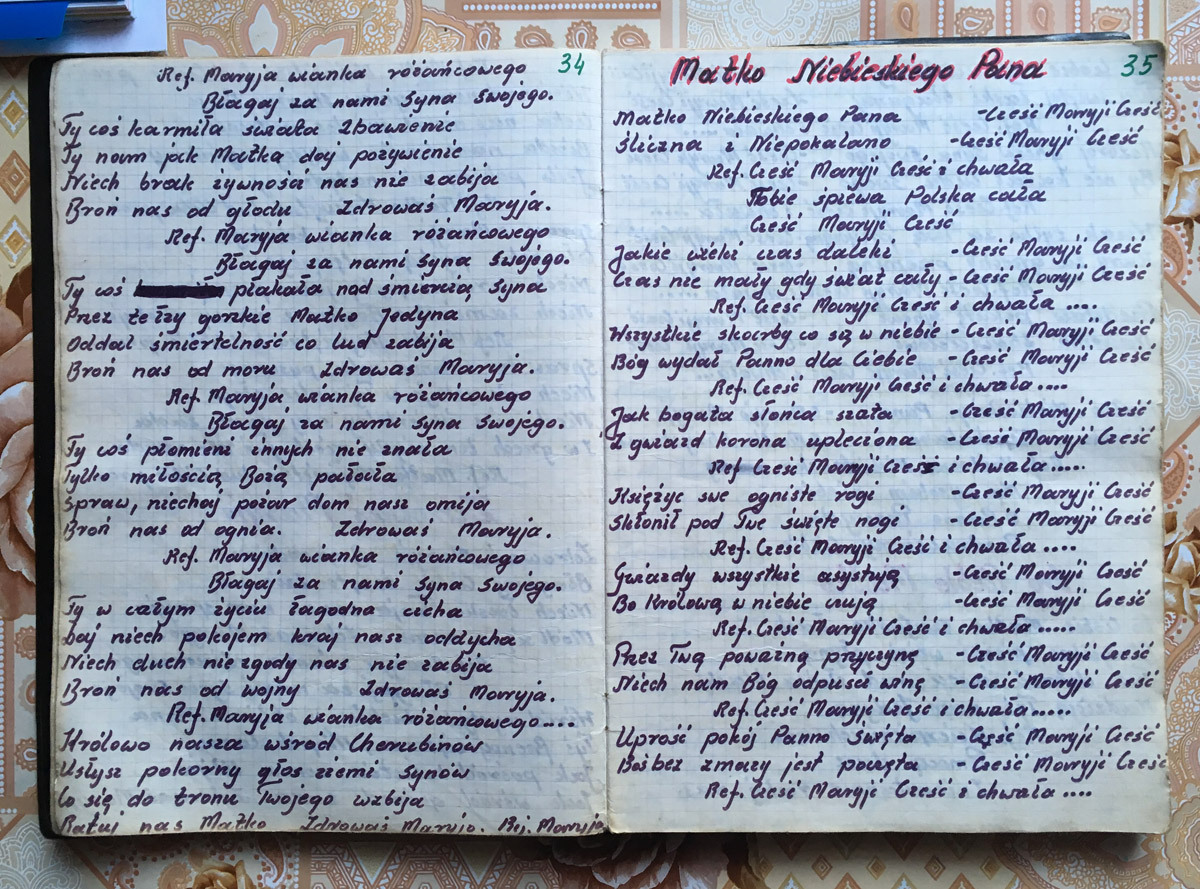 34
Ref. Maryja wianka różańcowego
Błagaj za nami Syna Swojego.
Ty coś karmiła świata Zbawienie
Ty nam jak Matka daj pożywienie
Niech brak żywność nas nie zabija
Broń nas od głodu Zdrowaś Maryja.
Ref. Maryja wianka różańcowego
Błagaj za nami Syna Swojego.
Ty coś płakała nad śmiercią Syna
Przez te łzy gorzkie Matko Jedyna
Oddal śmiertelność co lud zabija
Broń nas od moru Zdrowaś Maryja.
Ref. Maryja wianka różańcowego
Błagaj za nami Syna Swojego.
Ty coś płomieni innych nie znała
Tylko miłością Bożą pałała
Spraw, niechaj pożar dom nasz omija
Broń nas od ognia. Zdrowaś Maryja.
Ref. Maryja wianka różańcowego
Błagaj za nami Syna Swojego.
Ty w całym życiu łagodna cicha
Daj niech pokojem kraj nasz oddycha
Niech duch niezgody nas nie zabija
Broń nas od wojny Zdrowaś Maryja.
Ref. Maryja wianka różańcowego....
Królowo nasza wśród Cherubinów
Usłysz pokorny głos ziemi Synów
Co się do tronu Twojego wzbija
Ratuj nas Matko Zdrowaś Maryjo. Ref. Maryja
Matko Niebieskiego Pana 35
Matko Niebieskiego Pana -Cześć Maryji Cześć
Śliczna i Niepokalano -Cześć Maryji Cześć
Ref. Cześć Maryji Cześć i chwała
Tobie śpiewa Polska cała
Cześć Maryji Cześć
Jakie wieki czas daleki -Cześć Maryji Cześć
Czas nie mały gdy świat cały -Cześć Maryji Cześć
Ref. Cześć Maryji Cześć i chwała ....
Wszystkie skarby co są w niebie -Cześć Maryji Cześć
Bóg wydał Panno dla Ciebie -Cześć Maryji Cześć
Ref. Cześć Maryji Cześć i chwała....
Jak bogata słońca szata -Cześć Maryji Cześć
Z gwiazd korona upleciona -Cześć Maryji Cześć
Ref Cześć Maryji Cześć i chwała.....
Księżyc swe ogniste rogi -Cześć Maryji Cześć
Skłonił pod Twe święte nogi -Cześć Maryji Cześć
Ref. Cześć Maryji Cześć i chwała....
Gwiazdy wszystkie asystują -Cześć Maryji Cześć
Bo Królową w niebie czują -Cześć Maryji Cześć
Ref. Cześć Maryji Cześć i chwała.....
Przez Twą poważną przyczynę -Cześć Maryji Cześć
Niech nam Bóg odpuści winę -Cześć Maryji Cześć
Ref. Cześć Maryji Cześć i chwała.....
Uproś pokój Panno Święta -Cześć Maryji Cześć
Boś bez zmazy jest poczęta -Cześć Maryji Cześć
Ref. Cześć Maryji Cześć i chwała....